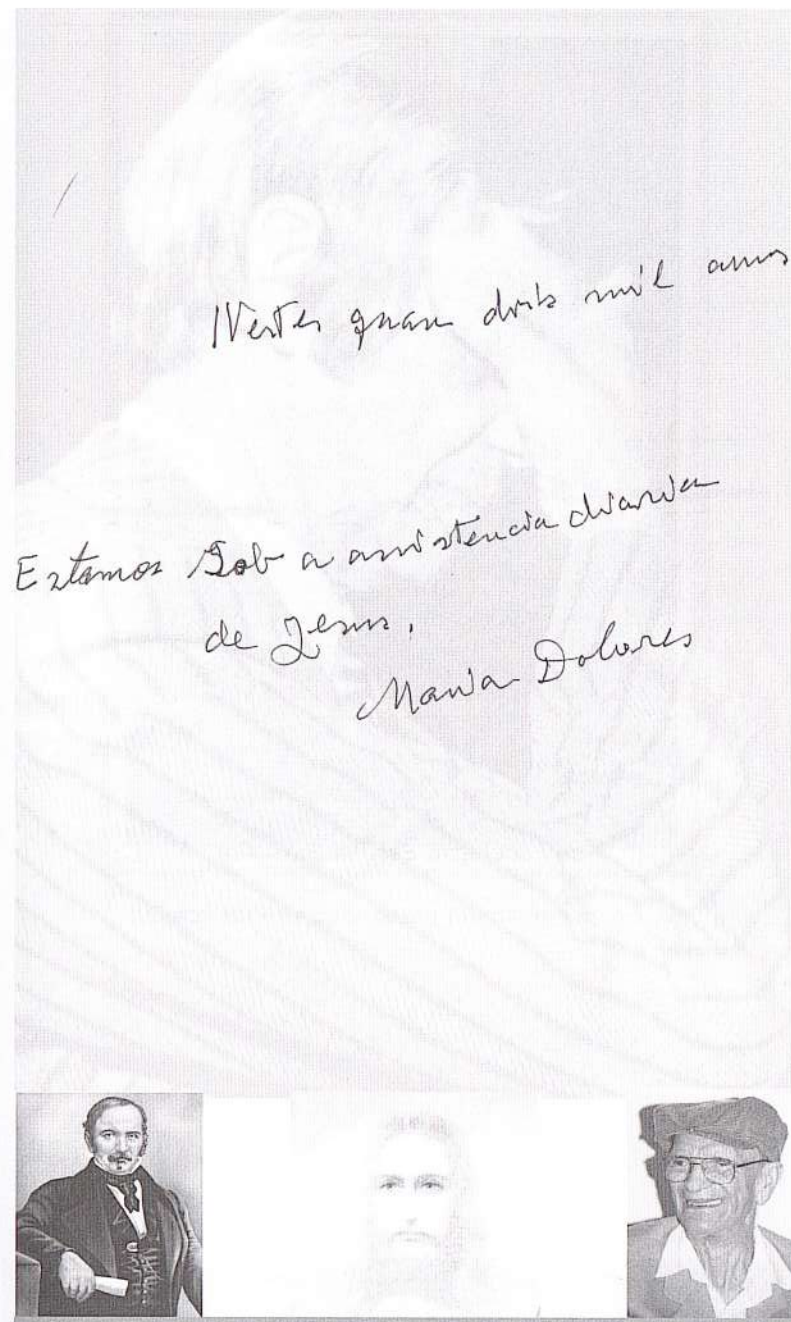 Nestes quase dois mil anos
Estamos Sob a assistencia diaria
de Jesus.
Maria Dolores